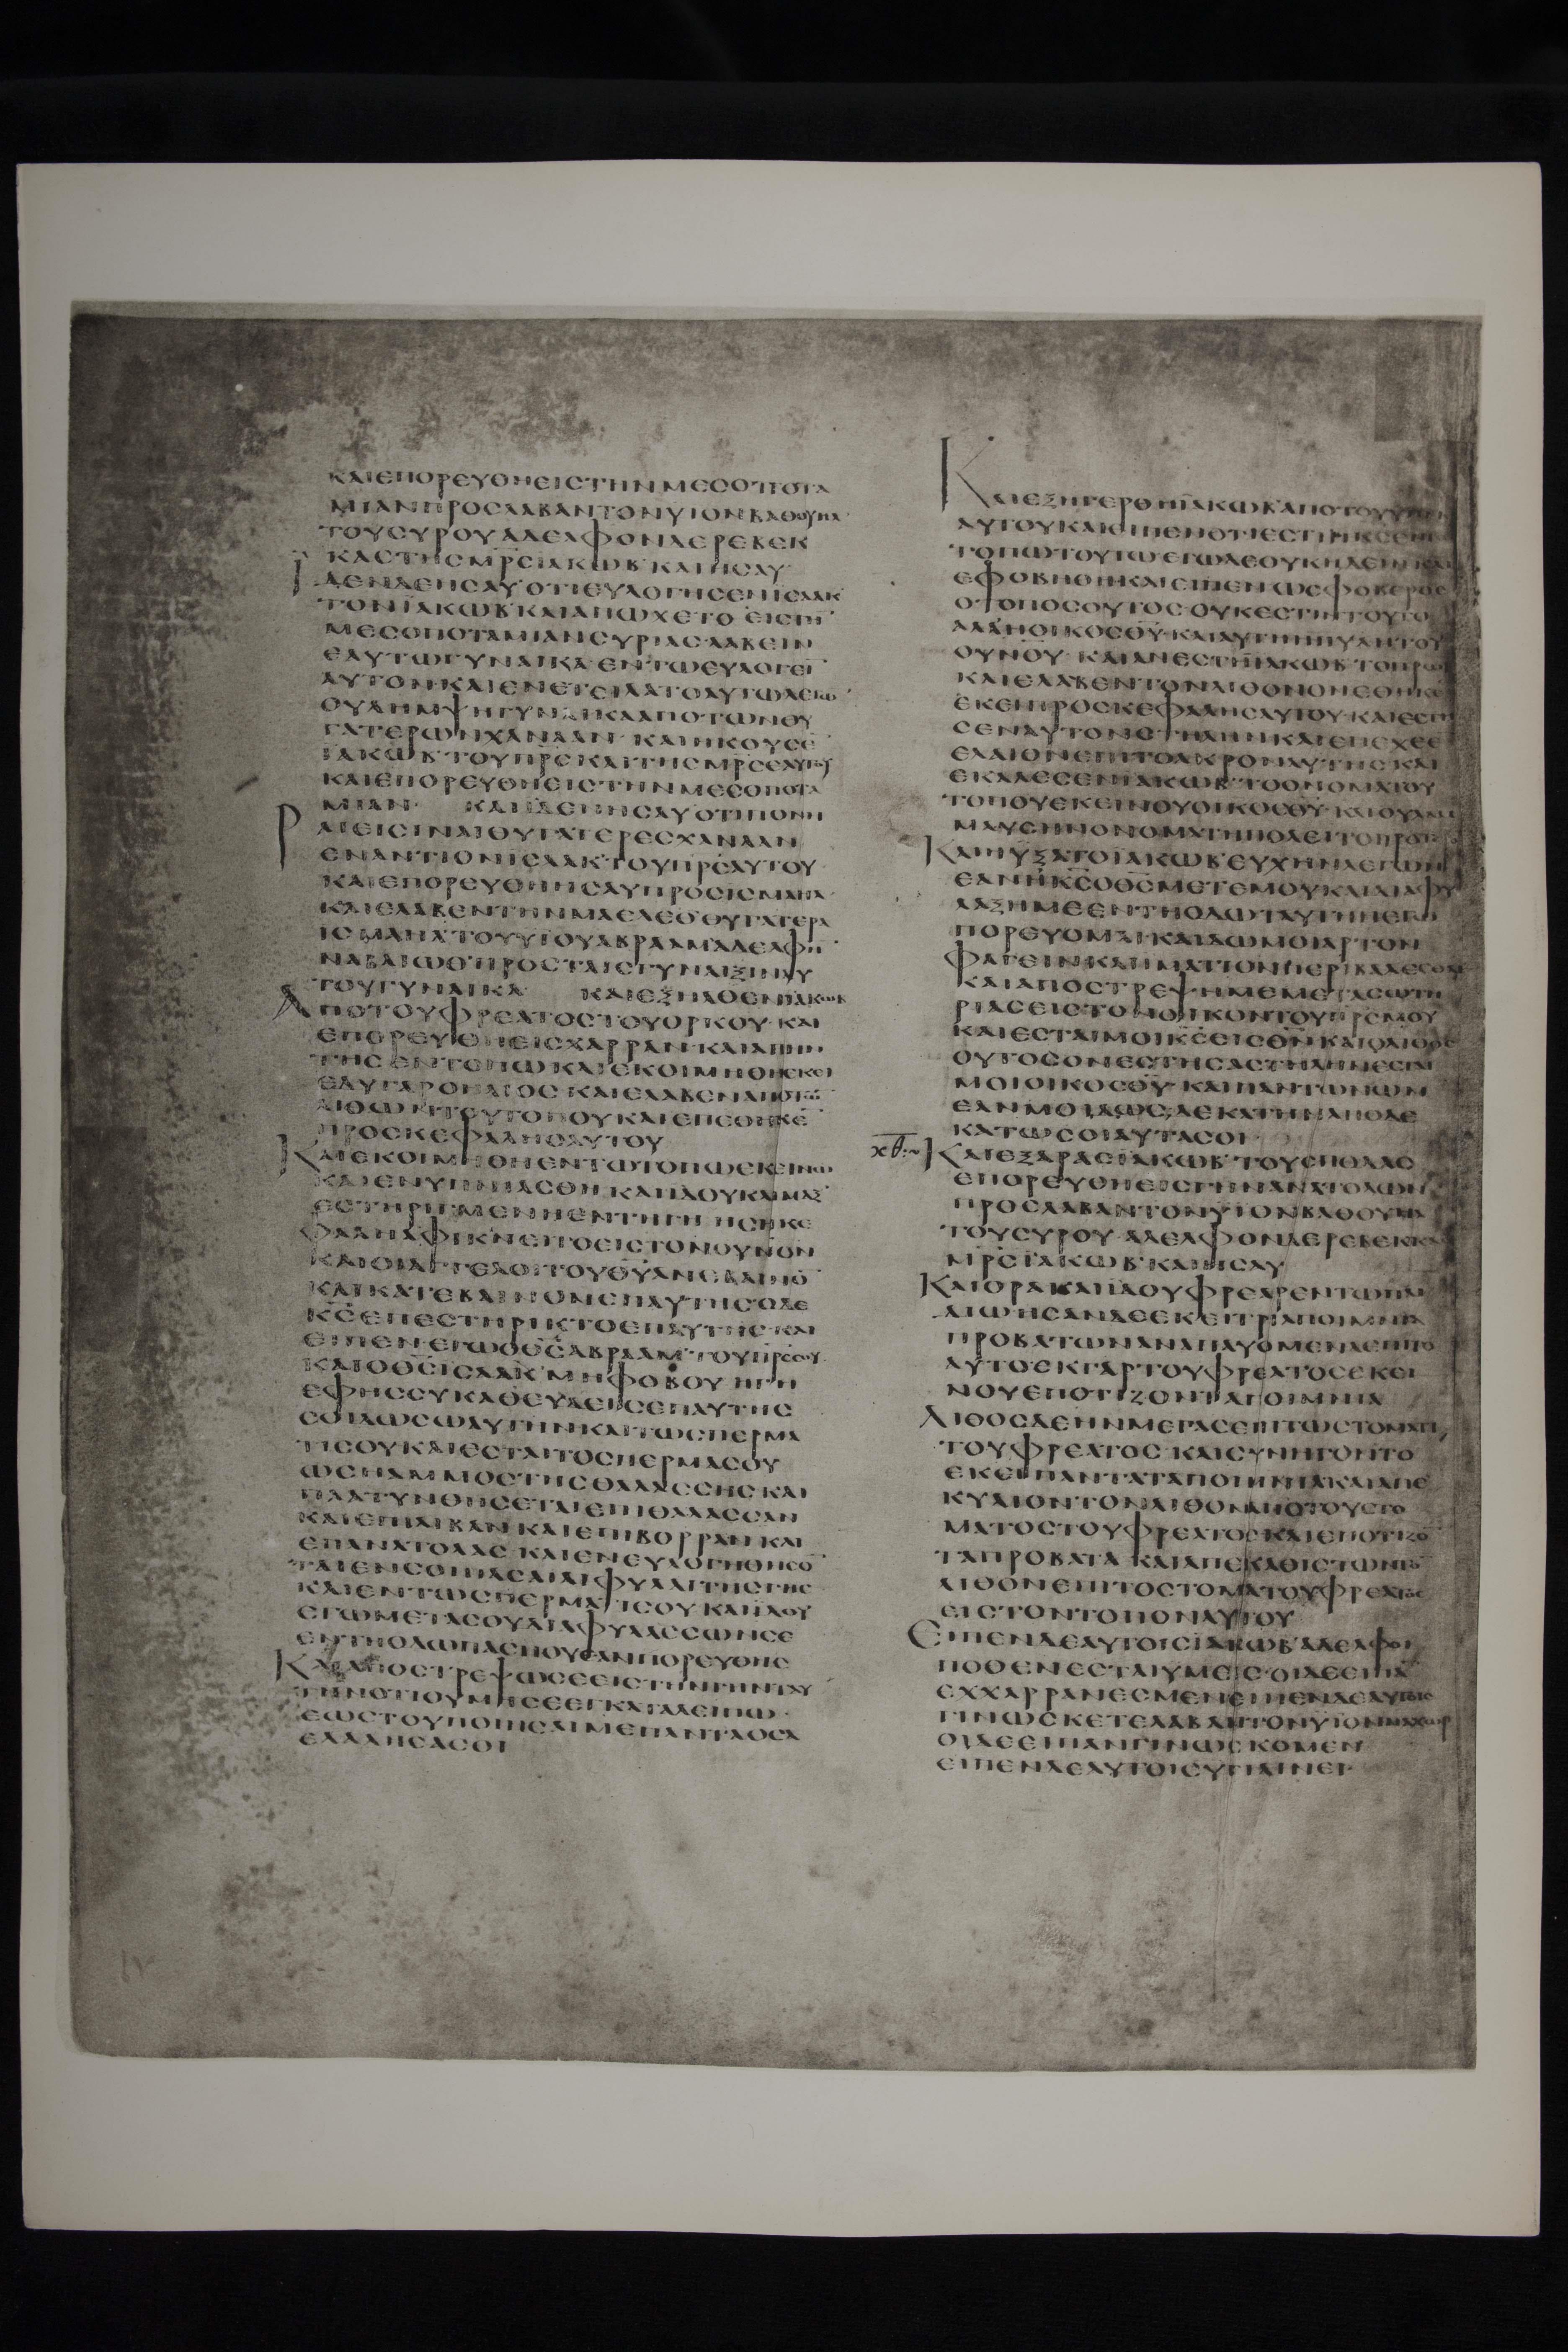 ΚΑΙΕΠΟΡΕΥΘΗΕΙСΤΗΝΜΕСΟΠΟΤΑ
ΜΙΑΝΠΡΟСΛΑΒΑΝΤΟΝΥΙΟΝΒΑΘΟΥΗΛ
ΤΟΥСΥΡΟΥΑΔΕΛΦΟΝΔΕΡΕΒΕΚ
ΚΑСΤΗСΜΡ̅СΙΑΚΩΒ ΚΑΙΗСΑΥ
ΙΔΕΝΔΕΗСΑΥΟΤΙΕΥΛΟΓΗСΕΝΙСΑΑΚ
ΤΟΝΙΑΚΩΒΚΑΙΑΠΩΧΕΤΟ ΕΙСΤΗ̅
ΜΕСΟΠΟΤΑΜΙΑΝСΥΡΙΑСΛΑΒΕΙΝ
ΕΑΥΤΩΓΥΝΑΙΚΑΕΝΤΩΕΥΛΟΓΕΙ̅
ΑΥΤΟΝ·ΚΑΙΕΝΕΤΕΙΛΑΤΟΑΥΤΩΛΕΓΩ̅
ΟΥΛΗΜΨΗΓΥΝΑΙΚΑΑΠΟΤΩΝΘΥ
ΓΑΤΕΡΩΝΧΑΝΑΑΝ· ΚΑΙΗΚΟΥСΕ̅
ΙΑΚΩΒ ΤΟΥΠΡ̅СΚΑΙΤΗСΜΡ̅СΕΑΥΤΟΥ
ΚΑΙΕΠΟΡΕΥΘΗΕΙСΤΗΝΜΕСΟΠΟΤΑ
ΜΙΑΝ· ΚΑΙΙΔΕΝΗСΑΥΟΤΙΠΟΝΗ
ΡΑΙΕΙСΙΝΑΙΘΥΓΑΤΕΡΕСΧΑΝΑΑΝ
ΕΝΑΝΤΙΟΝΙСΑΑΚΤΟΥΠΡ̅СΑΥΤΟΥ
ΚΑΙΕΠΟΡΕΥΘΗΗСΑΥΠΡΟСΙСΜΑΗΛ·
ΚΑΙΕΛΑΒΕΝΤΗΝΜΑΕΛΕΘ ΘΥΓΑΤΕΡΑ
ΙСΜΑΗΛΤΟΥΥΙΟΥΑΒΡΑΑΜΑΔΕΛΦΗ̅
ΝΑΒΑΙΩΘΠΡΟСΤΑΙСΓΥΝΑΙΞΙΝΑΥ
ΤΟΥΓΥΝΑΙΚΑ ΚΑΙΕΞΗΛΘΕΝΙΑΚΩΒ
ΑΠΟΤΟΥΦΡΕΑΤΟСΤΟΥΟΡΚΟΥ·ΚΑΙ
ΕΠΟΡΕΥΘΗΕΙСΧΑΡΡΑΝ·ΚΑΙΑΠΗΝ
ΤΗСΕΝΤΟΠΩΚΑΙΕΚΟΙΜΗΘΗΕΚΕΙ
ΕΔΥΓΑΡΟΗΛΙΟС ΚΑΙΕΛΑΒΕΝΑΠΟΤΩ̅
ΛΙΘΩΝΤΟΥΤΟΠΟΥΚΑΙΕΠΕΘΗΚΕ̅
ΠΡΟСΚΕΦΑΛΗСΑΥΤΟΥ
ΚΑΙΕΚΟΙΜΗΘΗΕΝΤΩΤΟΠΩΕΚΕΙΝΩ
ΚΑΙΕΝΥΠΝΙΑСΘΗ·ΚΑΙΙΔΟΥΚΛΙΜΑΞ
ΕСΤΗΡΙΓΜΕΝΗΕΝΤΗΓΗ ΗСΗΚΕ
ΦΑΛΗΑΦΙΚΝΕΙΤΟΕΙСΤΟΝΟΥΝΟΝ
ΚΑΙΟΙΑΓΓΕΛΟΙΤΟΥΘΥ̅ΑΝΕΒΑΙΝΟ̅
ΚΑΙΚΑΤΕΒΑΙΝΟΝΕΠΑΥΤΗС·ΟΔΕ
ΚС̅ΕΠΕСΤΗΡΙΚΤΟΕΠΑΥΤΗСΚΑΙ
ΕΙΠΕΝΕΓΩΟΘС̅ΑΒΡΑΑΜΤΟΥΠΡ̅ССΟΥ
ΚΑΙΟΘС̅ΙСΑΑΚ ΜΗΦΟΒΟΥ ΗΓΗ
ΕΦΗССΥΚΑΘΕΥΔΕΙСΕΠΑΥΤΗС
СΟΙΔΩСΩΑΥΤΗΝΚΑΙΤΩСΠΕΡΜΑ
ΤΙСΟΥΚΑΙΕСΤΑΙΤΟСΠΕΡΜΑСΟΥ
ΩСΗΑΜΜΟСΤΗСΘΑΛΑССΗСΚΑΙ
ΠΛΑΤΥΝΘΗСΕΤΑΙΕΠΙΘΑΛΑССΑΝ
ΚΑΙΕΠΙΛΙΒΑΝΚΑΙΕΠΙΒΟΡΡΑΝΚΑΙ
ΕΠΑΝΑΤΟΛΑС·ΚΑΙΕΝΕΥΛΟΓΗΘΗСΟ̅
ΤΑΙΕΝСΟΙΠΑСΑΙΑΙΦΥΛΑΙΤΗСΓΗС
ΚΑΙΕΝΤΩСΠΕΡΜΑΤΙСΟΥ ΚΑΙΙΔΟΥ
ΕΓΩΜΕΤΑСΟΥΔΙΑΦΥΛΑССΩΝСΕ
ΕΝΤΗΟΔΩΠΑСΗΟΥΕΑΝΠΟΡΕΥΘΗС
ΚΑΙΑΠΟСΤΡΕΨΩСΕΕΙСΤΗΝΓΗΝΤΑΥ
ΤΗΝΟΤΙΟΥΜΗСΕΕΓΚΑΤΑΛΕΙΠΩ·
ΕΩСΤΟΥΠΟΙΗСΑΙΜΕΠΑΝΤΑΟСΑ
ΕΛΑΛΗСΑСΟΙ
ΚΑΙΕΞΗΓΕΡΘΗΙΑΚΩΒΑΠΟΤΟΥΥΠΝΟΥ
ΑΥΤΟΥΚΑΙΕΙΠΕΝΟΤΙΕСΤΙΝΚС̅ΕΝΤΩ
ΤΟΠΩΤΟΥΤΩΕΓΩΔΕΟΥΚΗΔΕΙΝΚΑΙ
ΕΦΟΒΗΘΗΚΑΙΕΙΠΕΝΩСΦΟΒΕΡΟС
ΟΤΟΠΟСΟΥΤΟС ΟΥΚΕСΤΙΝΤΟΥΤΟ
ΑΛΛΗΟΙΚΟСΘΥ̅ ΚΑΙΑΥΤΗΗΠΥΛΗΤΟΥ
ΟΥΝΟΥ ΚΑΙΑΝΕСΤΗΙΑΚΩΒ ΤΟΠΡΩΙ
ΚΑΙΕΛΑΒΕΝΤΟΝΛΙΘΟΝΟΝΕΘΗΚΕ̅
ΕΚΕΙΠΡΟСΚΕΦΑΛΗСΑΥΤΟΥ·ΚΑΙΕСΤΗ
СΕΝΑΥΤΟΝСΤΗΛΗΝΚΑΙΕΠΕΧΕΕ̅
ΕΛΑΙΟΝΕΠΙΤΟΑΚΡΟΝΑΥΤΗСΚΑΙ
ΕΚΑΛΕСΕΝΙΑΚΩΒ ΤΟΟΝΟΜΑΤΟΥ
ΤΟΠΟΥΕΚΕΙΝΟΥΟΙΚΟСΘΥ̅ ΚΑΙΟΥΛΑΜ
ΜΑΥСΗΝΟΝΟΜΑΤΗΠΟΛΕΙΤΟΠΡΟΤΕΡΟ̅
ΚΑΙΗΥΞΑΤΟΙΑΚΩΒ ΕΥΧΗΝΛΕΓΩΝ
ΕΑΝΗΚС̅ΟΘС̅ΜΕΤΕΜΟΥΚΑΙΔΙΑΦΥ
ΛΑΞΗΜΕΕΝΤΗΟΔΩΤΑΥΤΗΗΕΓΩ
ΠΟΡΕΥΟΜΑΙ·ΚΑΙΔΩΜΟΙΑΡΤΟΝ
ΦΑΓΕΙΝΚΑΙΙΜΑΤΙΟΝΠΕΡΙΒΑΛΕСΘΑΙ
ΚΑΙΑΠΟСΤΡΕΨΗΜΕΜΕΤΑСΩΤΗ
ΡΙΑСΕΙСΤΟΝΟΙΚΟΝΤΟΥΠΡ̅СΜΟΥ
ΚΑΙΕСΤΑΙΜΟΙΚС̅ΕΙСΘΝ̅ ΚΑΙΟΛΙΘΟС
ΟΥΤΟСΟΝΕСΤΗСΑСΤΗΛΗΝΕСΤΑΙ
ΜΟΙΟΙΚΟСΘΥ̅ ΚΑΙΠΑΝΤΩΝΩΝ
ΕΑΝΜΟΙΔΩСΔΕΚΑΤΗΝΑΠΟΔΕ
ΚΑΤΩСΟΙΑΥΤΑСΟΙ·
κθ:~ ΚΑΙΕΞΑΡΑСΙΑΚΩΒ ΤΟΥСΠΟΔΑС
ΕΠΟΡΕΥΘΗΕΙСΓΗΝΑΝΑΤΟΛΩΝ
ΠΡΟСΛΑΒΑΝΤΟΝΥΙΟΝΒΑΘΟΥΗΛ
ΤΟΥСΥΡΟΥ ΑΔΕΛΦΟΝΔΕΡΕΒΕΚΚΑС
ΜΡ̅СΙΑΚΩΒ ΚΑΙΗСΑΥ
ΚΑΙΟΡΑΚΑΙΙΔΟΥΦΡΕΑΡΕΝΤΩΠΕ
ΔΙΩΗСΑΝΔΕΕΚΕΙΤΡΙΑΠΟΙΜΝΙΑ
ΠΡΟΒΑΤΩΝΑΝΑΠΑΥΟΜΕΝΑΕΠΙΤΟ
ΑΥΤΟΕΚΓΑΡΤΟΥΦΡΕΑΤΟСΕΚΕΙ
ΝΟΥΕΠΟΤΙΖΟΝΤΑΠΟΙΜΝΙΑ
ΛΙΘΟСΔΕΗΝΜΕΓΑСΕΠΙΤΩСΤΟΜΑΤΙ
ΤΟΥΦΡΕΑΤΟС·ΚΑΙСΥΝΗΓΟΝΤΟ
ΕΚΕΙΠΑΝΤΑΤΑΠΟΙΜΝΙΑΚΑΙΑΠΕ
ΚΥΛΙΟΝΤΟΝΛΙΘΟΝΑΠΟΤΟΥСΤΟ
ΜΑΤΟСΤΟΥΦΡΕΑΤΟСΚΑΙΕΠΟΤΙΖΟ̅
ΤΑΠΡΟΒΑΤΑ ΚΑΙΑΠΕΚΑΘΙСΤΩΝΤΟ̅
ΛΙΘΟΝΕΠΙΤΟСΤΟΜΑΤΟΥΦΡΕΑΤΟС
ΕΙСΤΟΝΤΟΠΟΝΑΥΤΟΥ
ΕΙΠΕΝΔΕΑΥΤΟΙСΙΑΚΩΒ ΑΔΕΛΦΟΙ
ΠΟΘΕΝΕСΤΑΙΥΜΕΙС·ΟΙΔΕΕΙΠΑ̅
ΕΧΧΑΡΡΑΝΕСΜΕΝΕΙΠΕΝΔΕΑΥΤΟΙС
ΓΙΝΩСΚΕΤΕΛΑΒΑΝΤΟΝΥΙΟΝΝΑΧΩΡ
ΟΙΔΕΕΙΠΑΝΓΙΝΩСΚΟΜΕΝ
ΕΙΠΕΝΔΕΑΥΤΟΙСΥΓΙΑΙΝΕΙ·